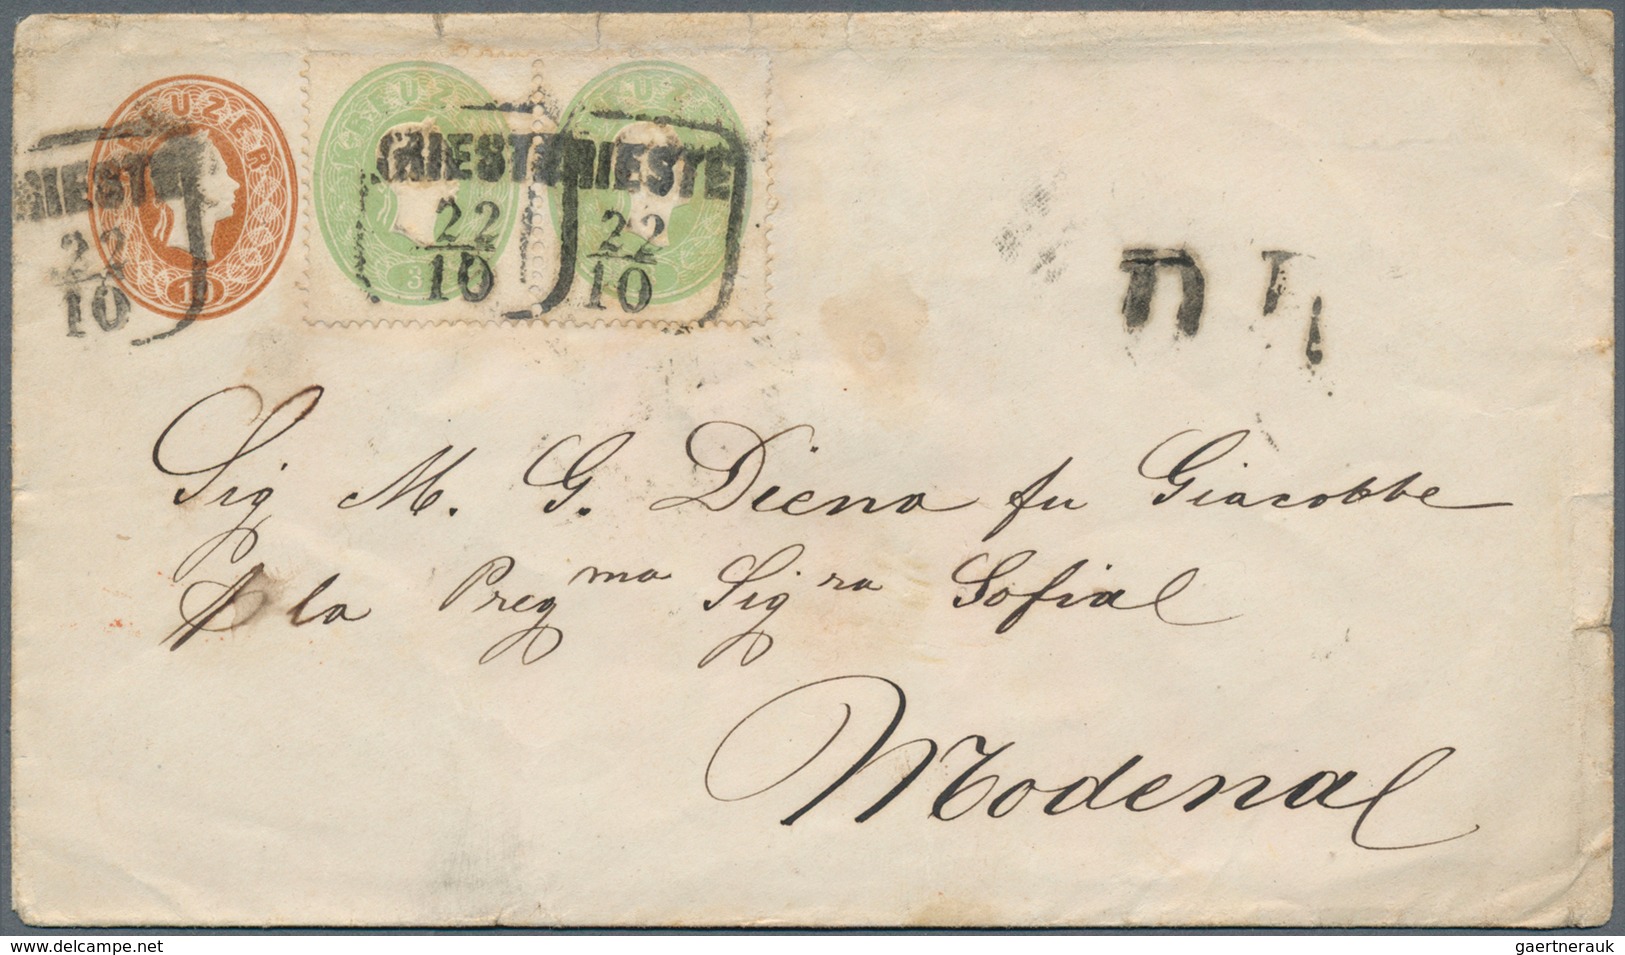 UZER
10
RIESTE
22
10
3
EUZ
RIESTE
22
10
UZ
RIESTE
22
10
Sig M. G. Diena fu Giacobbe
p la Preg ma Sig ra Sofia
Modena
delcampe.net
gaertnerauk